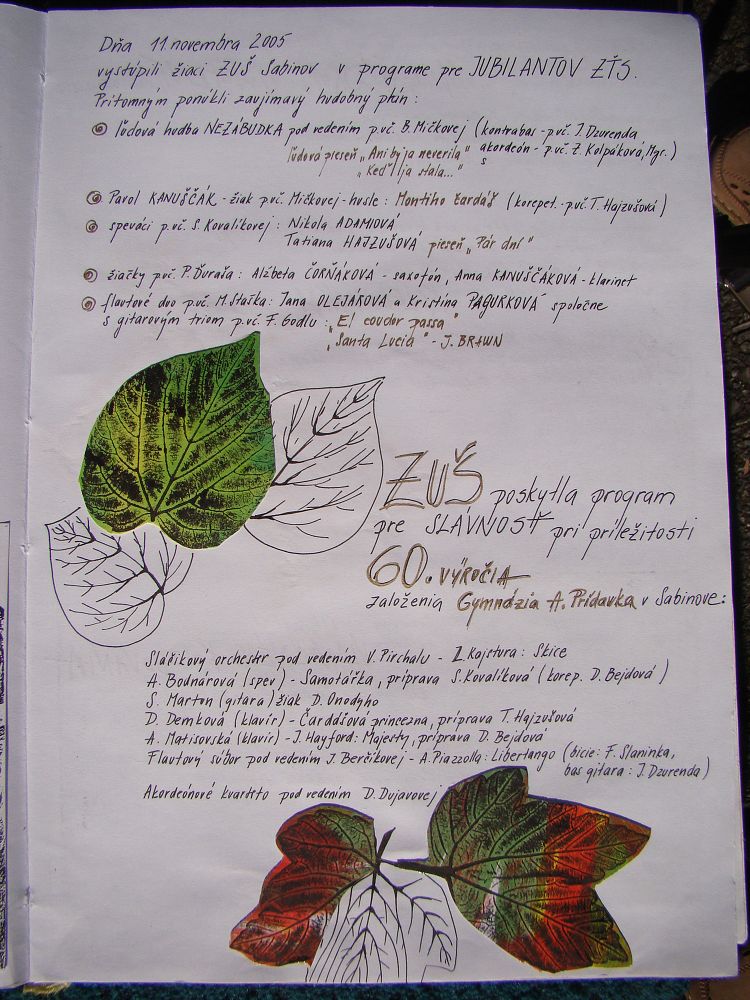 Dňa 11 novembra 2005
vystúpili žiaci ZUŠ Sabinov v programe pre JUBILANTOV ZŤS.
Prítomným ponúkli zaujímavý hudobný plán:
ľudová hudba NEZÁBUDKA pod vedením p.uč. B. Mičkovej (kontrabas - p.uč. J. Dzurenda
akordeón - p.uč. Z. Kolpáková, Mgr.)
s
ľudová pieseň „Ani by ja neverila"
„Keď ja stala..."
Pavol KANUŠČÁK - žiak p.uč. Mičkovej - husle: Montiho čardáš (korepet. - p.uč. T. Hajzušová)
speváci p.uč. S. Kovalíkovej: Nikola ADAMIOVÁ
Tatiana HAJZUŠOVÁ pieseň „Pár dní"
žiačky p.uč. P. Ďuraša: Alžbeta ČORŇÁKOVÁ - saxofón, Anna KANUŠČÁKOVÁ - klarinet
flautové duo p.uč. M. Staška: Jana OLEJÁROVÁ a Kristína PAGURKOVÁ spoločne
s gitarovým triom p.uč. F. Godlu: „El condor passa"
„Santa Lucia" - J. BRAWN
ZUŠ poskytla program
pre SLÁVNOSŤ pri príležitosti
60. VÝROČIA
založenia Gymnázia A. Prídavka v Sabinove:
Sláčikový orchestr pod vedením V. Pirchalu - Z. Kojstura: Skice
A. Bodnárová (spev) - Samotářka, príprava S. Kovalíková (korep. D. Bejdová)
S. Marton (gitara) žiak D. Onodyho
D. Demková (klavír) - Čardášová princezna, príprava T. Hajzušová
A. Matisovská (klavír) - J. Hayford: Majesty, príprava D. Bejdová
Flautový súbor pod vedením J. Berčíkovej - A. Piazzolla: Libertango (bicie: F. Slaninka,
bas gitara: J. Dzurenda)
Akordeónové kvarteto pod vedením D. Dujavovej